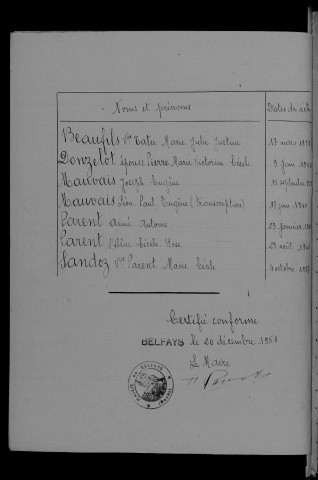 Noms et prénoms
Dates des actes
Beaufils Vve Tatre Marie Julie Justine 17 mars
Donzelot épouse Pierre Marie Victorine Cécile 9 juin
Mauvais Joseph Eugène 15 septembre
Mauvais Léon Paul Eugène (transcription) 17 juin 1940
Parent Aimé Antoine 23 janvier
Parent Cécile Rose 29 août
Sandoz Vve Parent Marie Cécile 4 octobre
Certifié conforme
BELFAYS le 20 décembre 1951
Le Maire
MAIRIE DE BELFAYS